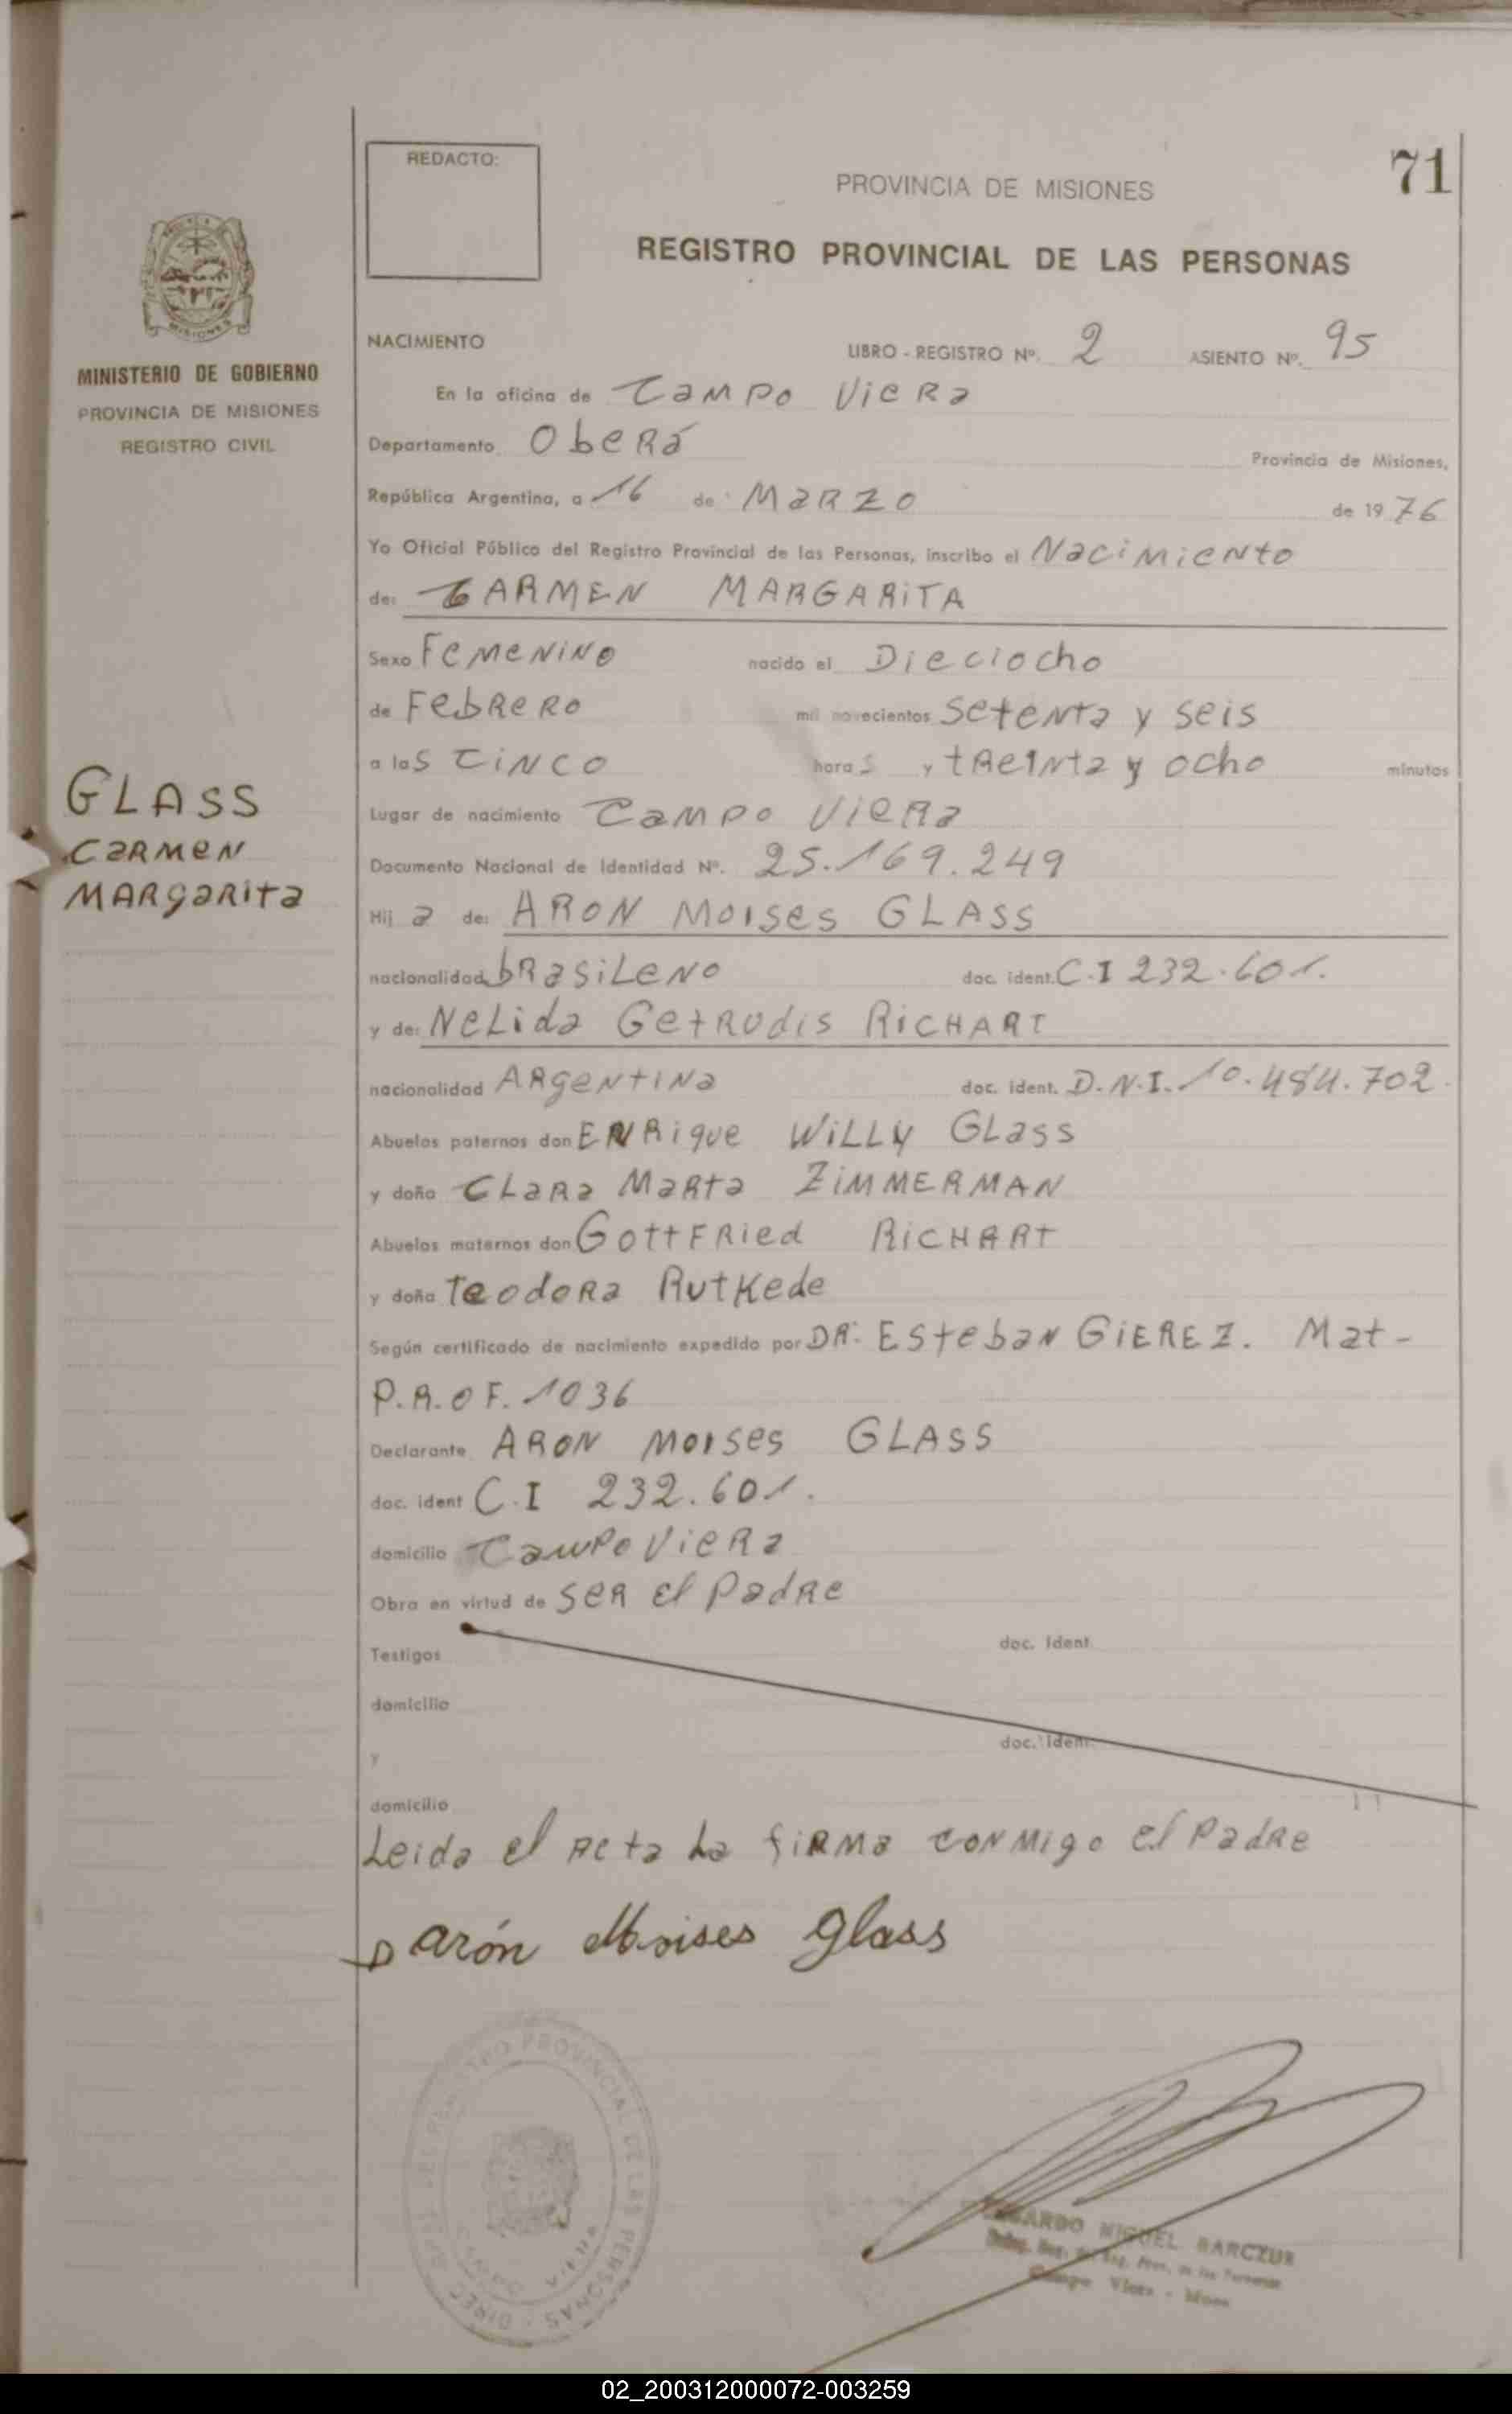 REDACTO:
71
PROVINCIA DE MISIONES
REGISTRO PROVINCIAL DE LAS PERSONAS
MISIONES
MINISTERIO DE GOBIERNO
PROVINCIA DE MISIONES
REGISTRO CIVIL
NACIMIENTO LIBRO - REGISTRO Nº. 2 ASIENTO Nº. 95
En la oficina de Campo Viera
Departamento Oberá Provincia de Misiones,
República Argentina, a 16 de Marzo de 1976
Yo Oficial Público del Registro Provincial de las Personas, inscribo el Nacimiento
de: CARMEN MARGARITA
Sexo Femenino nacido el Dieciocho
de Febrero mil novecientos setenta y seis
a las cinco horas y treinta y ocho minutos
GLASS
Carmen
Margarita
Lugar de nacimiento Campo Viera
Documento Nacional de Identidad Nº. 25.169.249
Hija de: ARON MOISES GLASS
nacionalidad brasileno doc. ident. C.I 232.601.
y de: Nelida Getrudis RICHART
nacionalidad Argentina doc. ident. D.N.I. 10.484.702.
Abuelos paternos don Enrique Willy Glass
y doña Clara Marta ZIMMERMAN
Abuelos maternos don Gottfried RICHART
y doña Teodora Rutkede
Según certificado de nacimiento expedido por DR. Esteban GIEREZ. Mat-
P.R.O F. 1036
Declarante ARON MOISES GLASS
doc. ident C.I 232.601.
domicilio Campo Viera
Obra en virtud de ser el Padre
Testigos doc. ident.
domicilio
y doc. ident.
domicilio
Leida el Acta La firma conmigo el Padre
Arón Moises Glass
REGISTRO PROVINCIAL DE LAS PERSONAS
CAMPO VIERA
MIGUEL BARCZUK
Campo Viera - Mnes
02_200312000072-003259